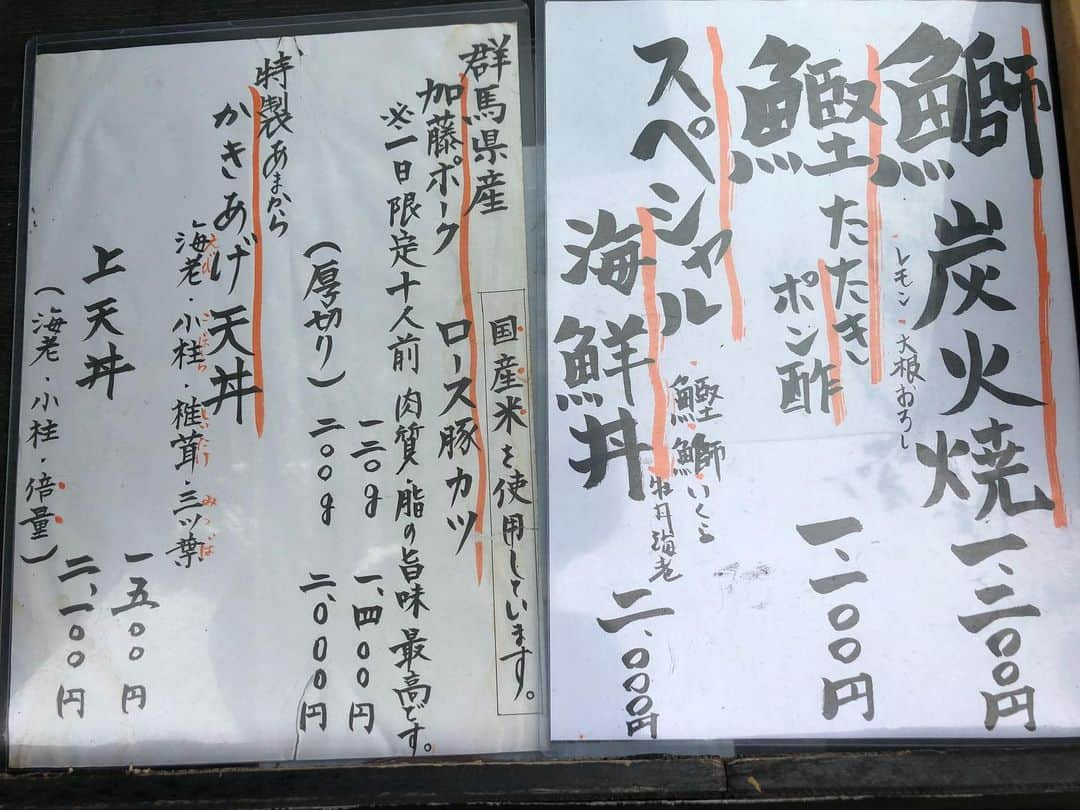 鰤炭火焼 一、二〇〇円
レモン・大根おろし
鰹たたき
ポン酢 一、一〇〇円
スペシャル
海鮮丼 二、〇〇〇円
鰹鰤いくら
牡丹海老
国産米を使用しています。
群馬県産
加藤ポーク ロース豚カツ
※一日限定十人前 肉質・脂の旨味 最高です。
一二〇g 一、四〇〇円
(厚切り) 二〇〇g 二、〇〇〇円
特製あまから
かきあげ天丼
海老・小柱・椎茸・三ッ葉
えび こばしら しいたけ みつば
一五〇〇円
上天丼
(海老・小柱・倍量) 二、一〇〇円